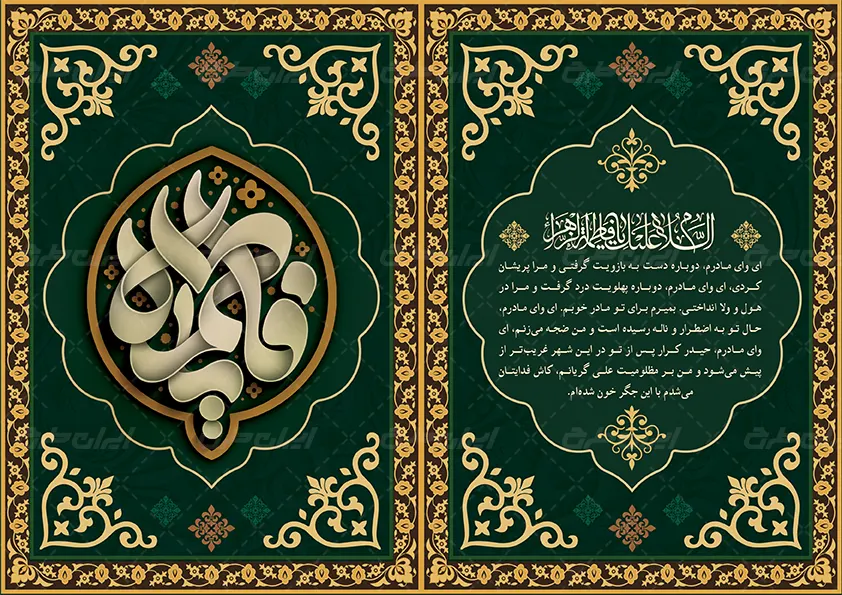 السلام علیک یا فاطمة الزهرا
ای وای مادرم، دوباره دست به بازویت گرفتی و مرا پریشان
کردی، ای وای مادرم، دوباره پهلویت درد گرفت و مرا در
هول و ولا انداختی. بمیرم برای تو مادر خوبم. ای وای مادرم،
حال تو به اضطرار و ناله رسیده است و من ضجه می‌زنم، ای
وای مادرم، حیدر کرار پس از تو در این شهر غریب‌تر از
پیش می‌شود و من بر مظلومیت علی گریانم، کاش فدایتان
می‌شدم با این جگر خون شده‌ام.